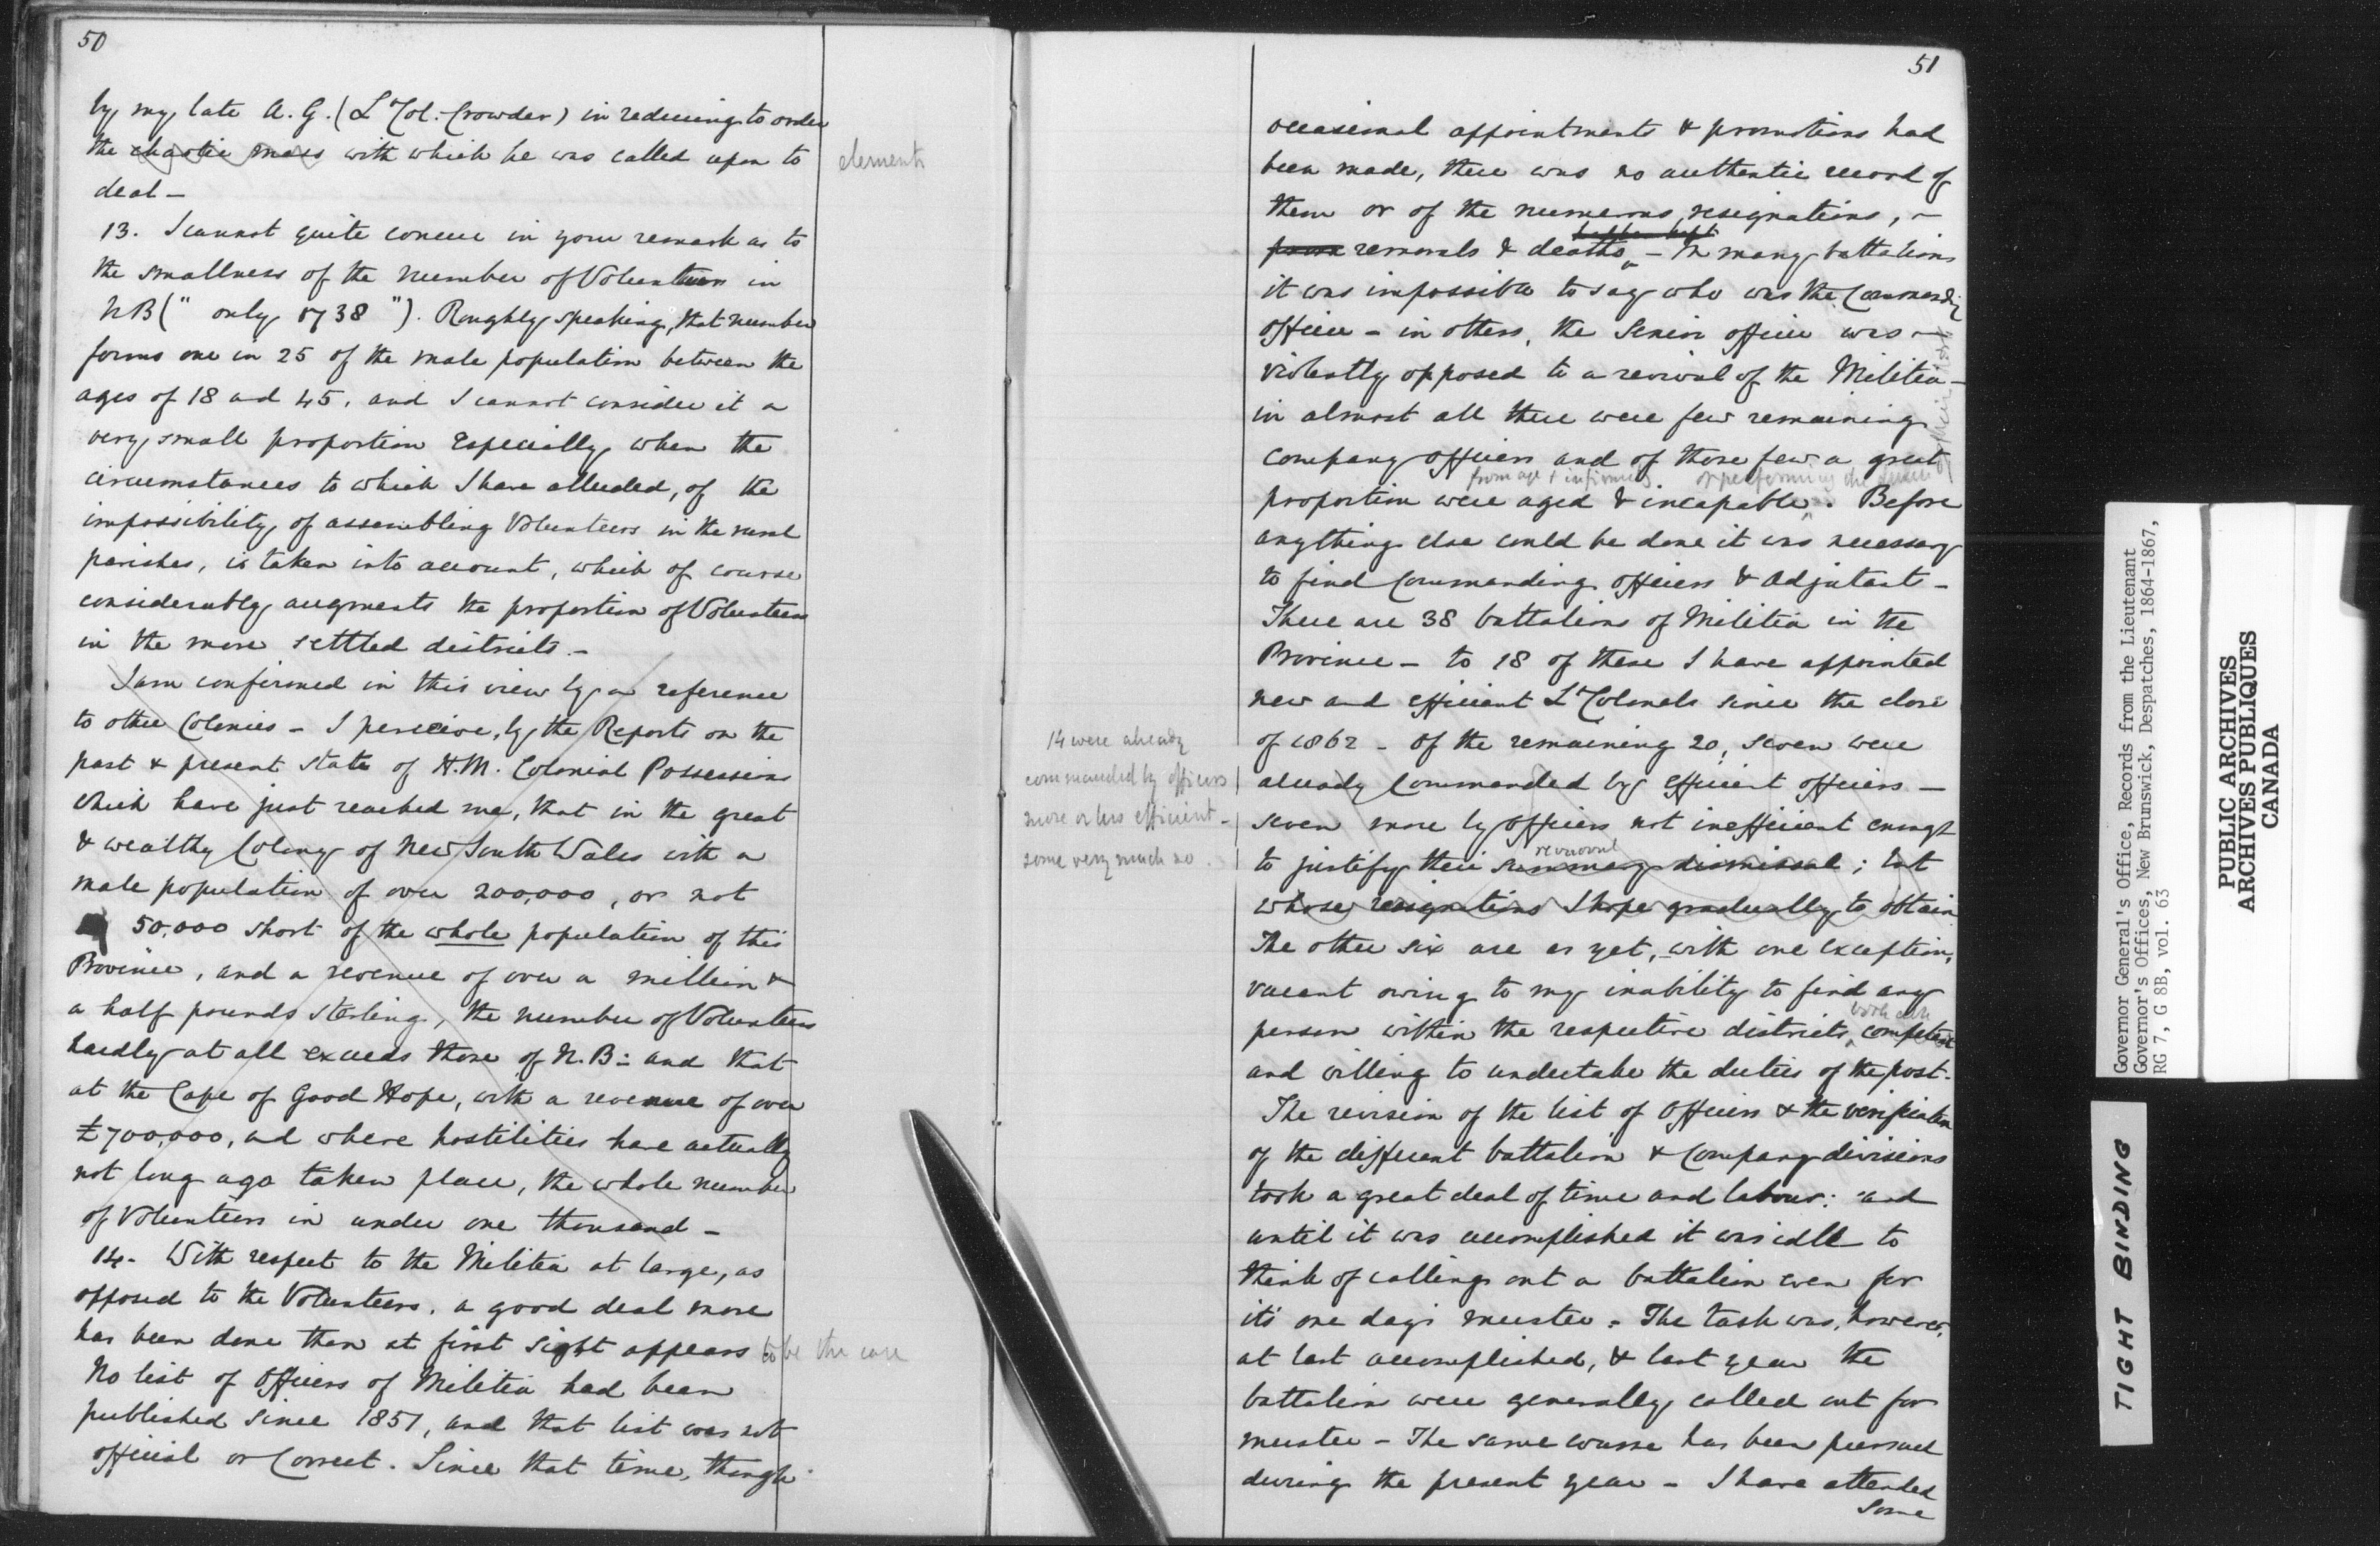 50
by my late A.G. (Lt Col. Crowder) in reducing to order
the chaotic mass with which he was called upon to
elements
deal —
13. I cannot quite concur in your remark as to
the smallness of the number of Volunteers in
NB (" only 1738 "). Roughly speaking, that number
forms one in 25 of the male population between the
ages of 18 and 45, and I cannot consider it a
very small proportion especially when the
circumstances to which I have alluded, of the
impossibility of assembling Volunteers in the rural
parishes, is taken into account, which of course
considerably augments the proportion of Volunteers
in the more settled districts. —
I am confirmed in this view by a reference
to other Colonies — I perceive, by the Reports on the
past & present state of H.M. Colonial Possessions
which have just reached me, that in the great
& wealthy Colony of New South Wales with a
male population of over 200,000, or not
50,000 short of the whole population of this
Province, and a revenue of over a million &
a half pounds sterling, the number of Volunteers
hardly at all exceeds those of N.B: and that
at the Cape of Good Hope, with a revenue of over
£700,000, and where hostilities have actually
not long ago taken place, the whole number
of Volunteers in under one thousand —
14. With respect to the Militia at large, as
opposed to the Volunteers, a good deal more
has been done than at first sight appears to be the case
No list of Officers of Militia had been
published since 1851, and that list was not
official or correct. Since that time, though
51
occasional appointments & promotions had
been made, there was no authentic record of
them or of the numerous, resignations, —
removals & deaths — In many battalions
it was impossible to say who was the Commandg
Officer — in others, the Senior officer was —
violently opposed to a revival of the Militia —
in almost all there were few remaining
Company officers and of those few a great
from age & infirmity of performing the duties of
their
proportion were aged & incapable. Before
anything else could be done it was necessary
to find Commanding Officers & Adjutants —
There are 38 battalions of Militia in the
Province — to 18 of these I have appointed
new and efficient Lt Colonels since the close
of 1862 — Of the remaining 20, seven were
already Commanded by efficient officers —
seven more by officers not inefficient enough
removal
to justify their summary dismissal; but
whose resignations I hope gradually to obtain
14 were already
commanded by officers
more or less efficient —
some very much so.
The other six are as yet, with one exception,
vacant owing to my inability to find any
person within the respective districts, competent
both able
and willing to undertake the duties of the post.
The revision of the list of Officers & the verification
of the different battalion & Company divisions
took a great deal of time and labour: and
until it was accomplished it was idle to
think of calling out a battalion even for
it's one day's muster. The task was, however,
at last accomplished, & last year the
battalion were generally called out for
muster — The same course has been pursued
during the present year — I have attended
Some
Governor General's Office, Records from the Lieutenant
Governor's Offices, New Brunswick, Despatches, 1864-1867,
RG 7, G 8B, vol. 63
PUBLIC ARCHIVES
ARCHIVES PUBLIQUES
CANADA
TIGHT BINDING